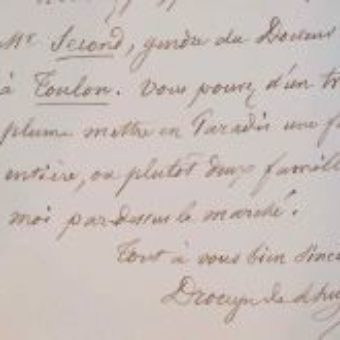 Mr Second, gendre du Docteur
à Toulon. Vous pouvez d'un tr
plume mettre en Paradis une f
entière, ou plutôt deux famill
moi par dessus le marché!
Tout à vous bien sincè
Drouyn de Lhuy